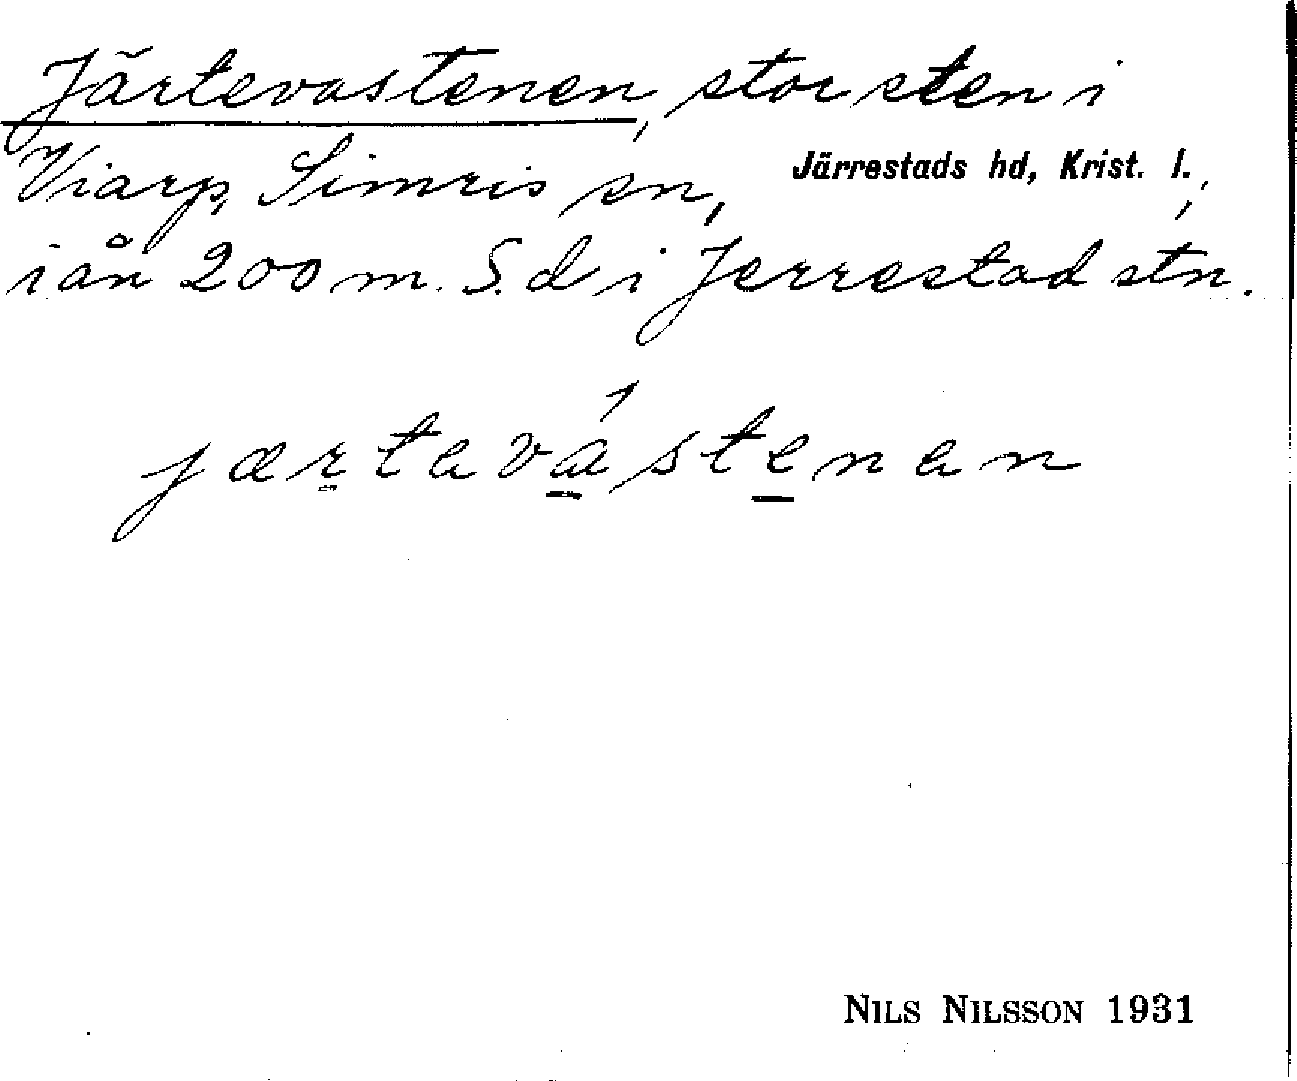 Järtevastenen, stor sten i
Viarp, Simris sn, Järrestads hd, Krist. l.,
i ån 200 m. S. d. i Jerrestad stn.
jærtavástenan
NILS NILSSON 1931